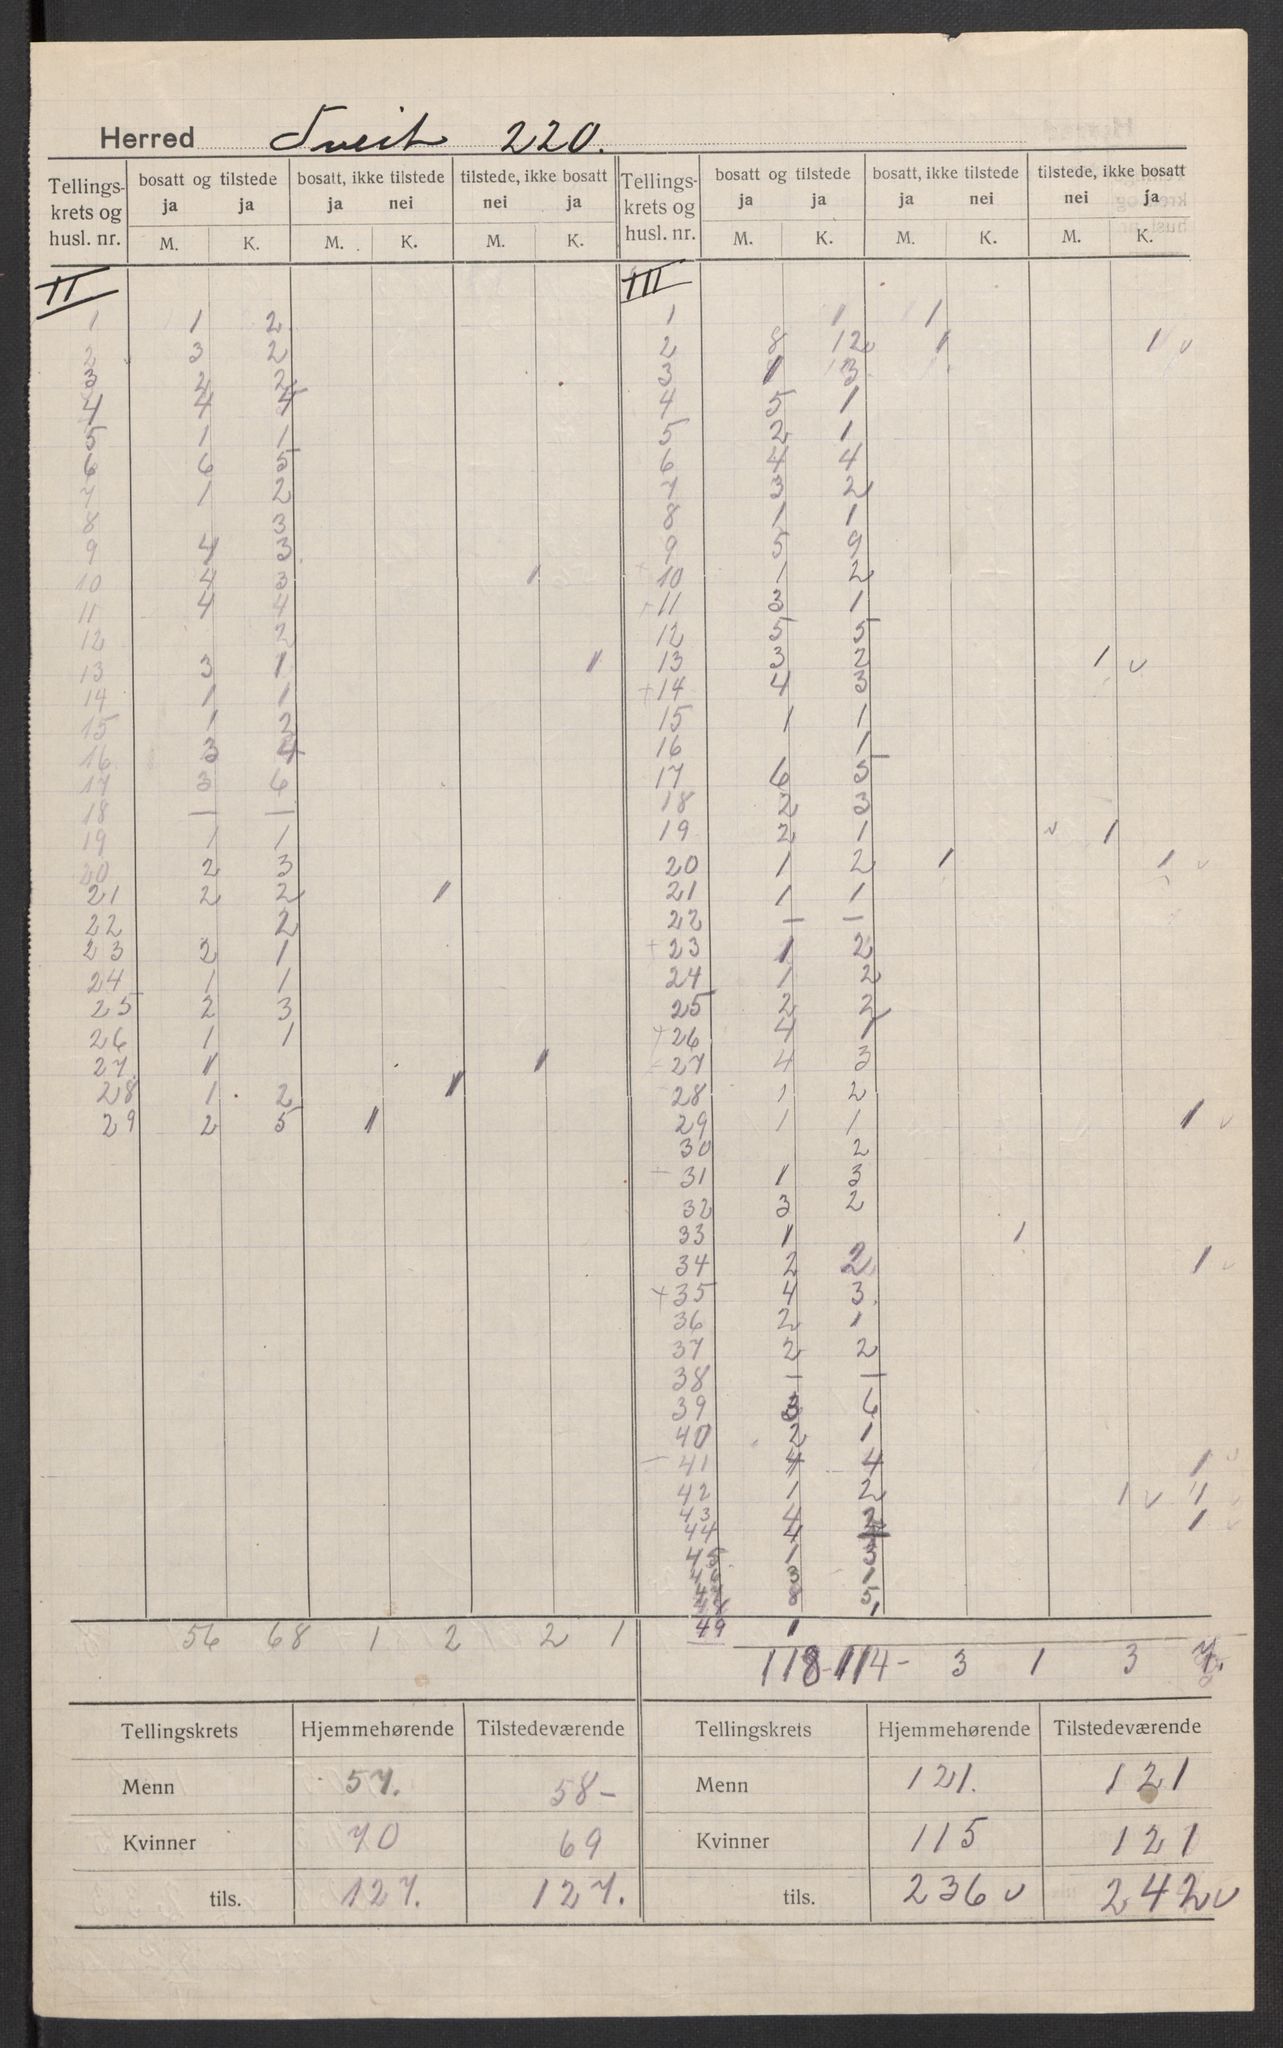 Herred Tveit 220.
Tellings- krets og husl. nr. | bosatt og tilstede | bosatt, ikke tilstede | tilstede, ikke bosatt | Tellings- krets og husl. nr. | bosatt og tilstede | bosatt, ikke tilstede | tilstede, ikke bosatt
ja ja | ja nei | nei ja | ja ja | ja nei | nei ja
M. K. | M. K. | M. K. | M. K. | M. K. | M. K.
II
1 1 2
2 3 2
3 2 2
4 4 4
5 1 1
6 6 5
7 1 2
8 3
9 4 3
10 4 3 1
11 4 4
12 2
13 3 1 1
14 1 1
15 1 2
16 3 4
17 3 6
18 — —
19 1 1
20 2 3
21 2 2 1
22 2
23 2 1
24 1 1
25 2 3
26 1 1
27. 1 1
28 1 2 1
29 2 5 1
56 68 1 2 2 1
III
1 1 1
2 8 12 1 1 v
3 1 3
4 5 1
5 2 1
6 4 4
7 3 2
8 1 1
9 5 9
+ 10 1 2
+ 11 3 1
12 5 5
13 3 2 1 v
+ 14 4 3
15 1 1
16 1
17 6 5
18 2 3
19 2 1 v 1
20 1 2 1 1 v
21 1 1
22 — —
+ 23 1 2
24 1 2
25 2 2
+ 26 4 1
27 4 3
28 1 2
29 1 1 1 v
30 2
31 1 3
32 3 2
33 1 1
34 2 2 1 v
+ 35 4 3.
36 2 1
37 2 2
38 — —
39 3 6
40 2 1
41 4 4 1 v
42 1 2 1 v 1 v
43 4 2 1 v
44 4
45 1 3
46 3 1
47 8 5
48 1
49 1
118 - 114 - 3 1 3 7.
Tellingskrets | Hjemmehørende | Tilstedeværende | Tellingskrets | Hjemmehørende | Tilstedeværende
Menn 57. 58 - Menn 121. 121
Kvinner 70 69 Kvinner 115 121
tils. 127. 127. tils. 236 v 242 v